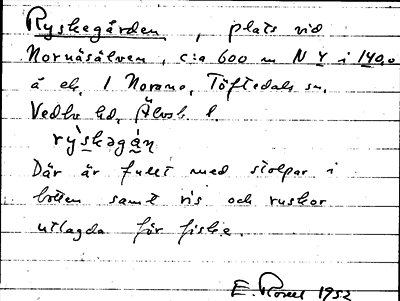 Ryskegården, plats vid
Nornäsälven, c:a 600 m N Y i 140,0
å ek. 1 Norane, Töftedals sn.
Vedbo hd, Älvsb. l.
rỳskəgán
Där är fullt med stolpar i
botten samt ris och ruskor
utlagda för fiske.
E. 1952